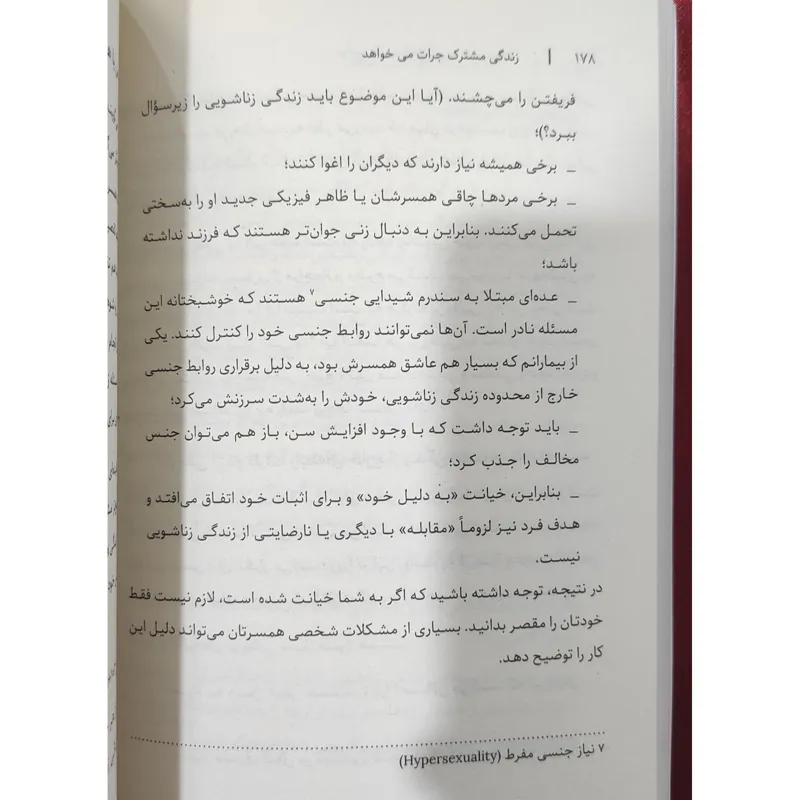 ۱۷۸ | زندگی مشترک جرات می خواهد
فریفتن را می‌چشند. (آیا این موضوع باید زندگی زناشویی را زیرسؤال
ببرد؟)؛
_ برخی همیشه نیاز دارند که دیگران را اغوا کنند؛
_ برخی مردها چاقی همسرشان یا ظاهر فیزیکی جدید او را به‌سختی
تحمل می‌کنند. بنابراین به دنبال زنی جوان‌تر هستند که فرزند نداشته
باشد؛
_ عده‌ای مبتلا به سندرم شیدایی جنسی۷ هستند که خوشبختانه این
مسئله نادر است. آن‌ها نمی‌توانند روابط جنسی خود را کنترل کنند. یکی
از بیمارانم که بسیار هم عاشق همسرش بود، به دلیل برقراری روابط جنسی
خارج از محدوده زندگی زناشویی، خودش را به‌شدت سرزنش می‌کرد؛
_ باید توجه داشت که با وجود افزایش سن، باز هم می‌توان جنس
مخالف را جذب کرد؛
_ بنابراین، خیانت «به دلیل خود» و برای اثبات خود اتفاق می‌افتد و
هدف فرد نیز لزوماً «مقابله» با دیگری یا نارضایتی از زندگی زناشویی
نیست.
در نتیجه، توجه داشته باشید که اگر به شما خیانت شده است، لازم نیست فقط
خودتان را مقصر بدانید. بسیاری از مشکلات شخصی همسرتان می‌تواند دلیل این
کار را توضیح دهد.
۷ نیاز جنسی مفرط (Hypersexuality)